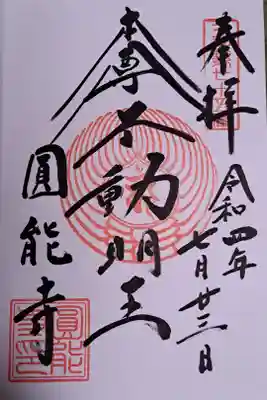 奉拝
令和四年
七月廿三日
本尊
不動明王
圓能寺